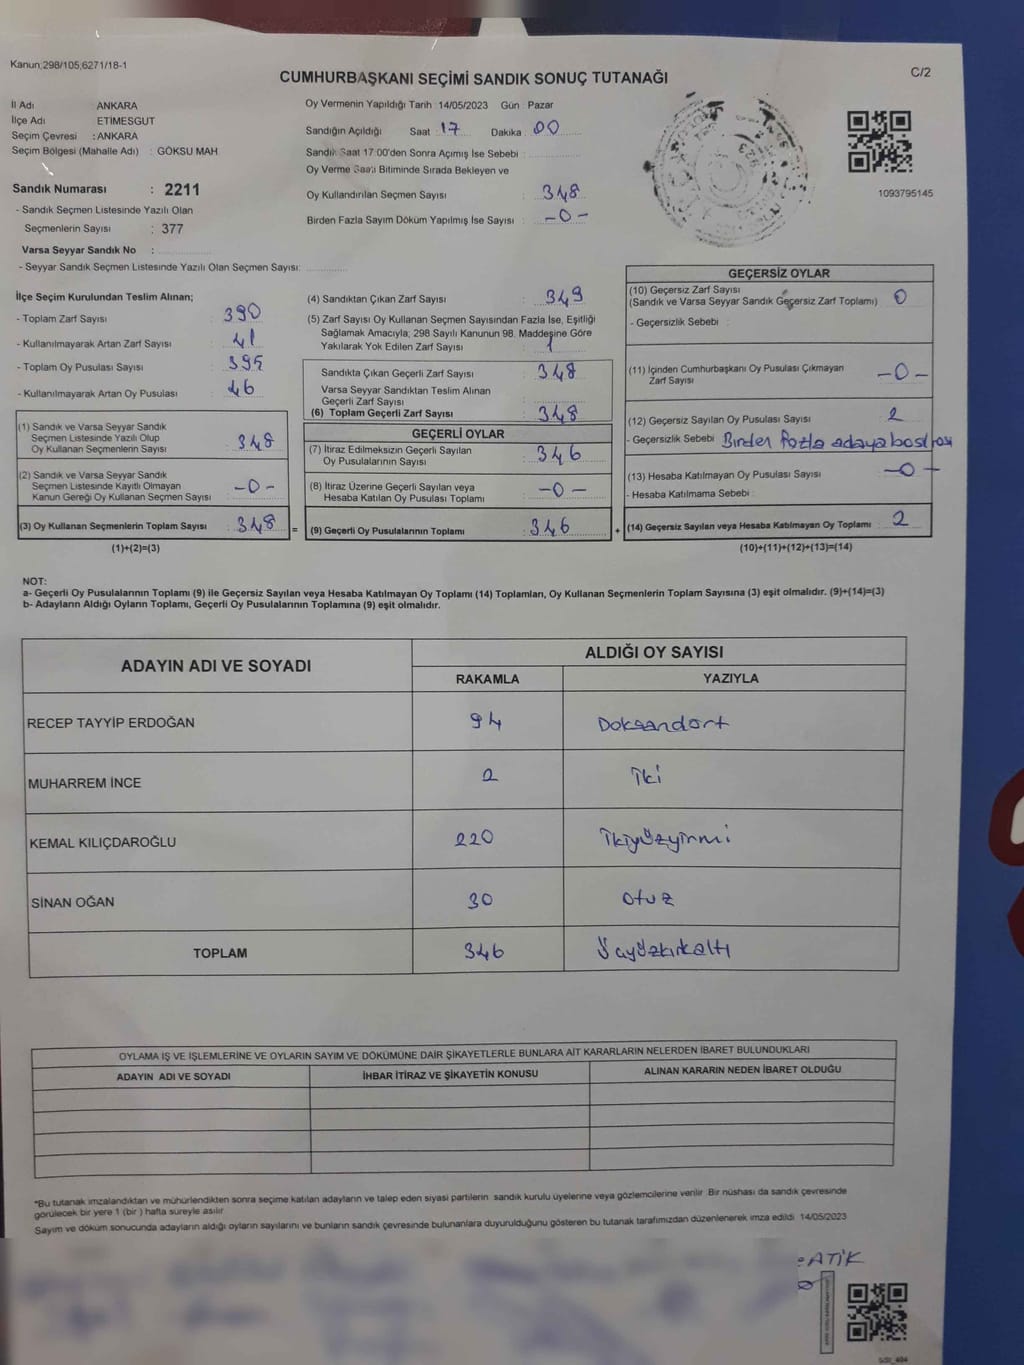 Kanun;298/105;6271/18-1
C/2
CUMHURBAŞKANI SEÇİMİ SANDIK SONUÇ TUTANAĞI
İl Adı ANKARA
İlçe Adı ETİMESGUT
Seçim Çevresi : ANKARA
Seçim Bölgesi (Mahalle Adı) : GÖKSU MAH.
Sandık Numarası : 2211
- Sandık Seçmen Listesinde Yazılı Olan
Seçmenlerin Sayısı : 377
Varsa Seyyar Sandık No :
- Seyyar Sandık Seçmen Listesinde Yazılı Olan Seçmen Sayısı:
Oy Vermenin Yapıldığı Tarih : 14/05/2023 Gün Pazar
Sandığın Açıldığı Saat : 17 Dakika : 00
Sandık Saat 17:00'den Sonra Açımış İse Sebebi :
Oy Verme Saati Bitiminde Sırada Bekleyen ve
Oy Kullandırılan Seçmen Sayısı : 348
Birden Fazla Sayım Döküm Yapılmış İse Sayısı : -0-
1093795145
İlçe Seçim Kurulundan Teslim Alınan;
- Toplam Zarf Sayısı : 390
- Kullanılmayarak Artan Zarf Sayısı : 41
- Toplam Oy Pusulası Sayısı : 395
- Kullanılmayarak Artan Oy Pusulası : 46
(1) Sandık ve Varsa Seyyar Sandık
Seçmen Listesinde Yazılı Olup
Oy Kullanan Seçmenlerin Sayısı : 348
(2) Sandık ve Varsa Seyyar Sandık
Seçmen Listesinde Kayıtlı Olmayan
Kanun Gereği Oy Kullanan Seçmen Sayısı : -0-
(3) Oy Kullanan Seçmenlerin Toplam Sayısı : 348
(1)+(2)=(3)
(4) Sandıktan Çıkan Zarf Sayısı : 349
(5) Zarf Sayısı Oy Kullanan Seçmen Sayısından Fazla İse, Eşitliği
Sağlamak Amacıyla; 298 Sayılı Kanunun 98. Maddesine Göre
Yakılarak Yok Edilen Zarf Sayısı : 1
Sandıkta Çıkan Geçerli Zarf Sayısı : 348
Varsa Seyyar Sandıktan Teslim Alınan
Geçerli Zarf Sayısı :
(6) Toplam Geçerli Zarf Sayısı : 348
GEÇERLİ OYLAR
(7) İtiraz Edilmeksizin Geçerli Sayılan
Oy Pusulalarının Sayısı : 346
(8) İtiraz Üzerine Geçerli Sayılan veya
Hesaba Katılan Oy Pusulası Toplamı : -0-
= (9) Geçerli Oy Pusulalarının Toplamı : 346
GEÇERSİZ OYLAR
(10) Geçersiz Zarf Sayısı
(Sandık ve Varsa Seyyar Sandık Geçersiz Zarf Toplamı) : 0
- Geçersizlik Sebebi :
(11) İçinden Cumhurbaşkanı Oy Pusulası Çıkmayan
Zarf Sayısı : -0-
(12) Geçersiz Sayılan Oy Pusulası Sayısı : 2
- Geçersizlik Sebebi : Birden fazla adaya
(13) Hesaba Katılmayan Oy Pusulası Sayısı : -0-
- Hesaba Katılmama Sebebi :
+ (14) Geçersiz Sayılan veya Hesaba Katılmayan Oy Toplamı : 2
(10)+(11)+(12)+(13)=(14)
NOT:
a- Geçerli Oy Pusulalarının Toplamı (9) ile Geçersiz Sayılan veya Hesaba Katılmayan Oy Toplamı (14) Toplamları, Oy Kullanan Seçmenlerin Toplam Sayısına (3) eşit olmalıdır. (9)+(14)=(3)
b- Adayların Aldığı Oyların Toplamı, Geçerli Oy Pusulalarının Toplamına (9) eşit olmalıdır.
ADAYIN ADI VE SOYADI
ALDIĞI OY SAYISI
RAKAMLA YAZIYLA
RECEP TAYYİP ERDOĞAN 94 Doksandört
MUHARREM İNCE 2 İki
KEMAL KILIÇDAROĞLU 220 İkiyüzyirmi
SİNAN OĞAN 30 Otuz
TOPLAM 346 Üçyüzkırkaltı
OYLAMA İŞ VE İŞLEMLERİNE VE OYLARIN SAYIM VE DÖKÜMÜNE DAİR ŞİKAYETLERLE BUNLARA AİT KARARLARIN NELERDEN İBARET BULUNDUKLARI
ADAYIN ADI VE SOYADI İHBAR İTİRAZ VE ŞİKAYETİN KONUSU ALINAN KARARIN NEDEN İBARET OLDUĞU
*Bu tutanak imzalandıktan ve mühürlendikten sonra seçime katılan adayların ve talep eden siyasi partilerin sandık kurulu üyelerine veya gözlemcilerine verilir. Bir nüshası da sandık çevresinde
görülecek bir yere 1 (bir ) hafta süreyle asılır.
Sayım ve döküm sonucunda adayların aldığı oyların sayılarını ve bunların sandık çevresinde bulunanlara duyurulduğunu gösteren bu tutanak tarafımızdan düzenlenerek imza edildi. 14/05/2023
ATİK